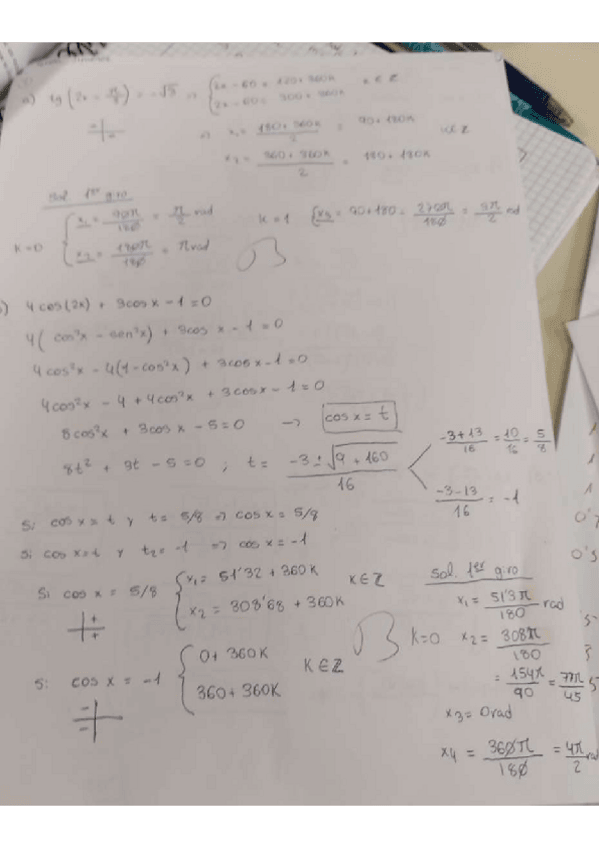 a) tg (2x - π/3) = -√3 ⇒ { 2x - 60 = 120 + 360K K ∈ Z
2x - 60 = 300 + 360K
⇒ x₁ = (180 + 360K)/2 = 90 + 180K K ∈ Z
x₂ = (360 + 360K)/2 = 180 + 180K
Sol 1er giro
K=0 { x₁ = 90π/180 = π/2 rad K=1 { x₃ = 90 + 180 = 270π/180 = 3π/2 rad
x₂ = 180π/180 = π rad
) 4 cos(2x) + 3cos x - 1 = 0
4( cos²x - sen²x) + 3cos x - 1 = 0
4 cos²x - 4(1 - cos²x) + 3cos x - 1 = 0
4cos²x - 4 + 4cos²x + 3cos x - 1 = 0
8cos²x + 3cos x - 5 = 0 → cos x = t
8t² + 3t - 5 = 0 ; t = (-3 ± √(9 + 160))/16
(-3+13)/16 = 10/16 = 5/8
(-3-13)/16 = -1
Si cos x = t y t = 5/8 ⇒ cos x = 5/8
Si cos x = t y t₂ = -1 ⇒ cos x = -1
Si cos x = 5/8 { x₁ = 51'32 + 360K K ∈ Z
x₂ = 308'68 + 360K
Si cos x = -1 { 0 + 360K K ∈ Z
360 + 360K
Sol. 1er giro
x₁ = 51'3π/180 rad
K=0 x₂ = 308π/180
= 154π/90 = 77π/45
x₃ = 0 rad
x₄ = 360π/180 = 4π/2 rad